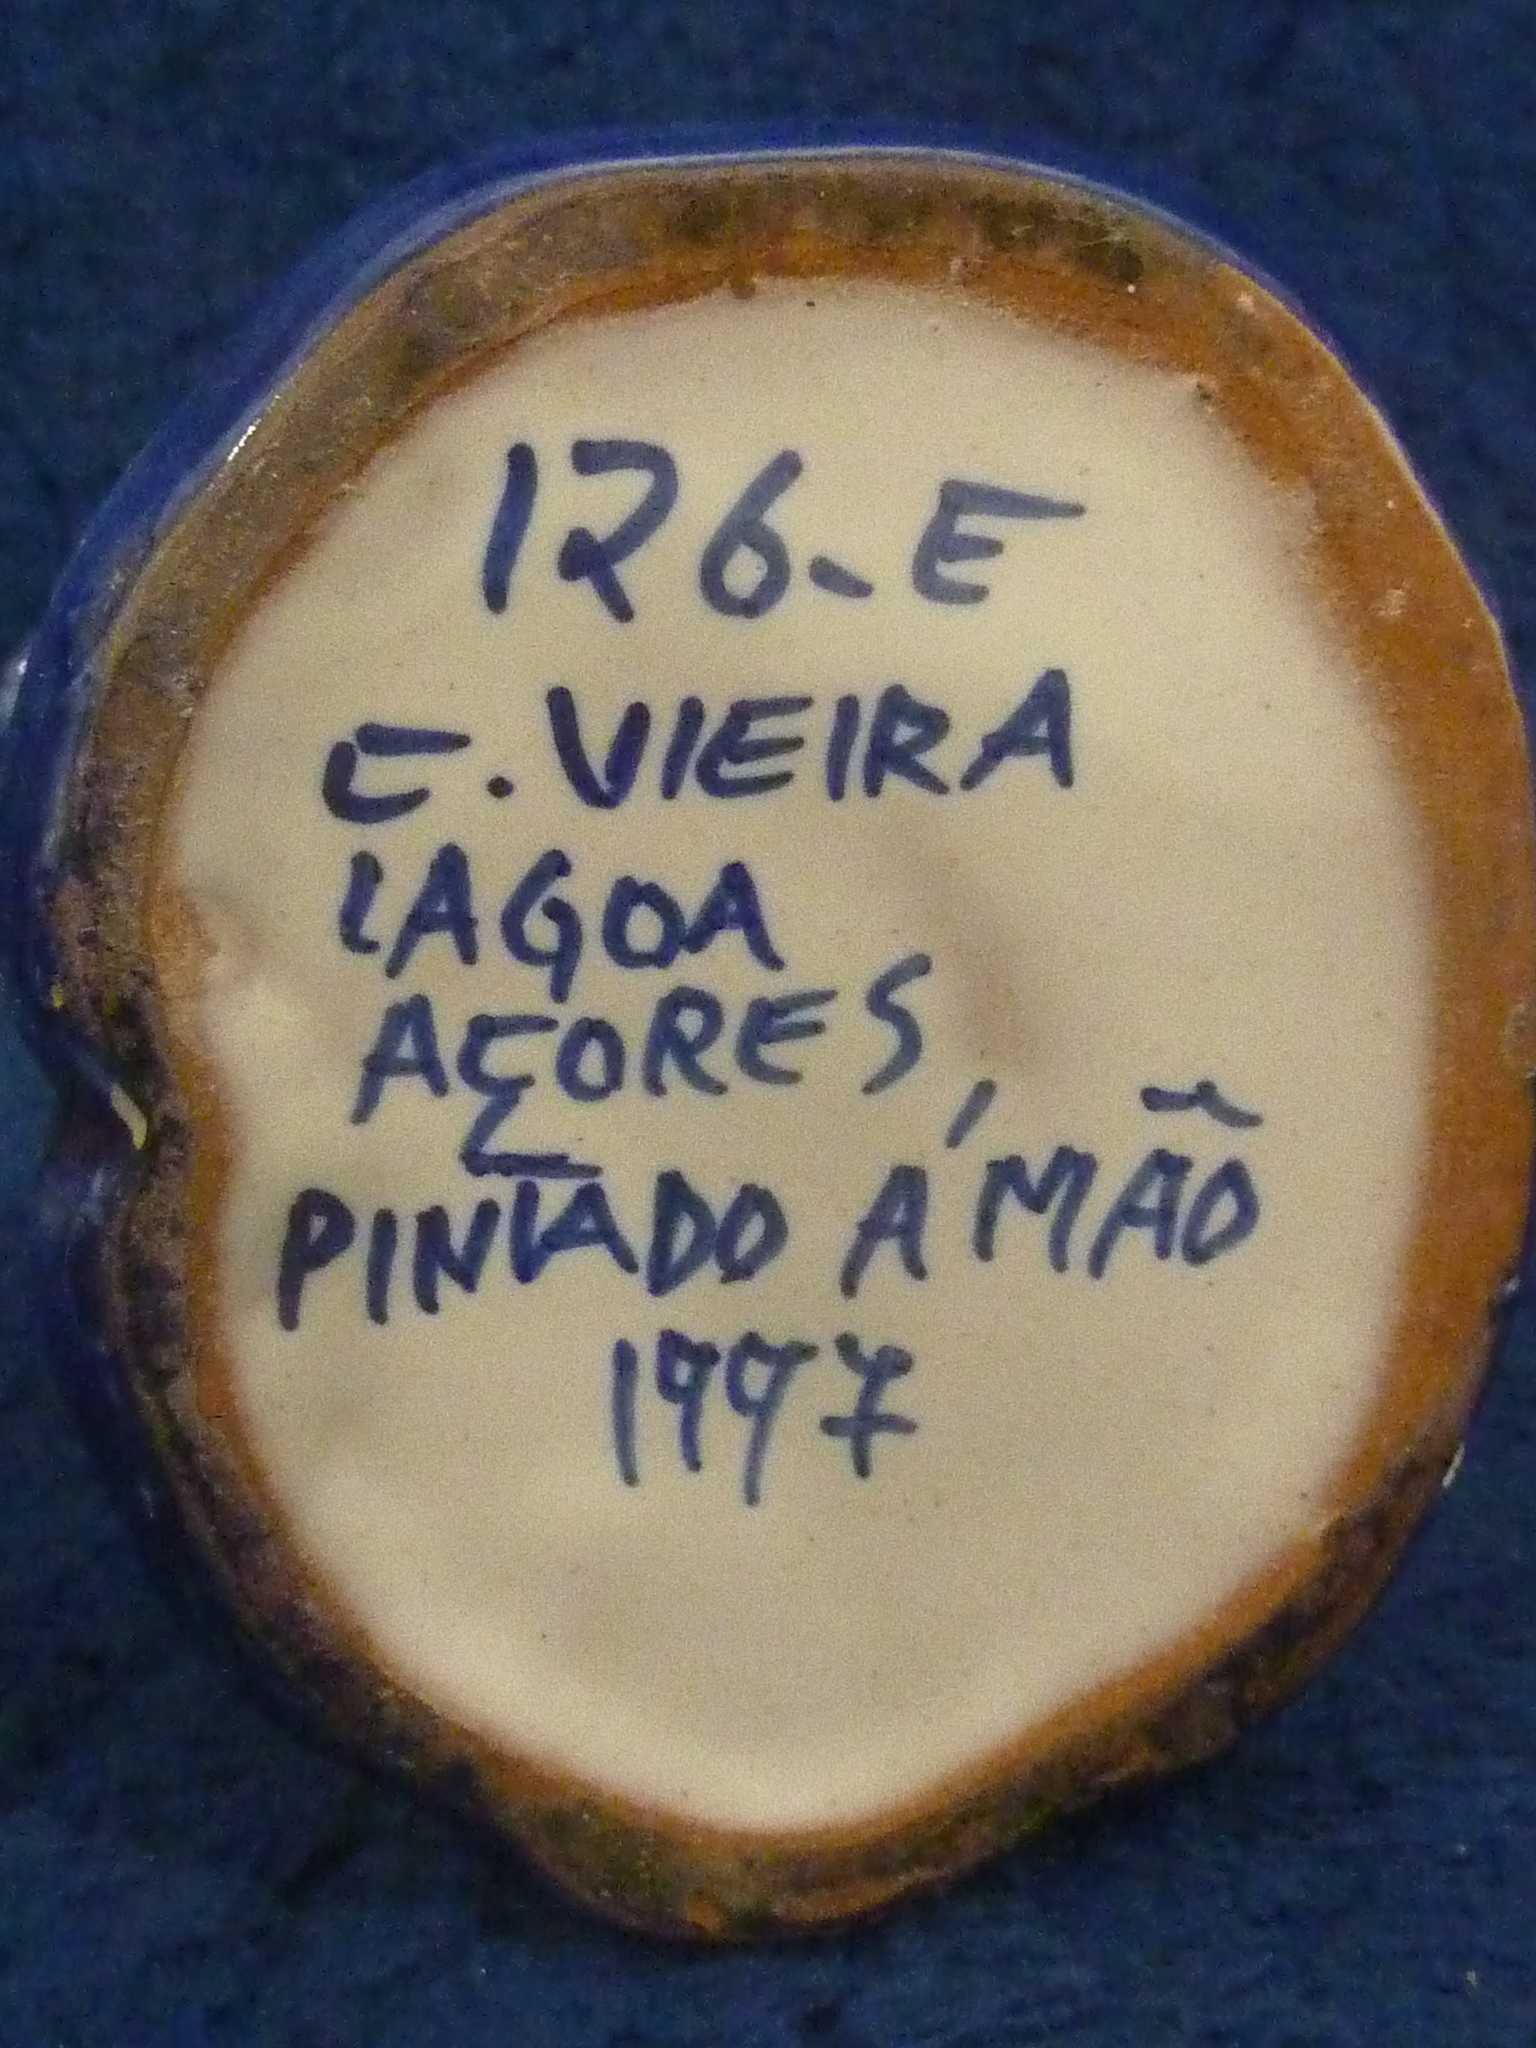 126-E
C. VIEIRA
LAGOA
AÇORES
PINTADO Á MÃO
1997